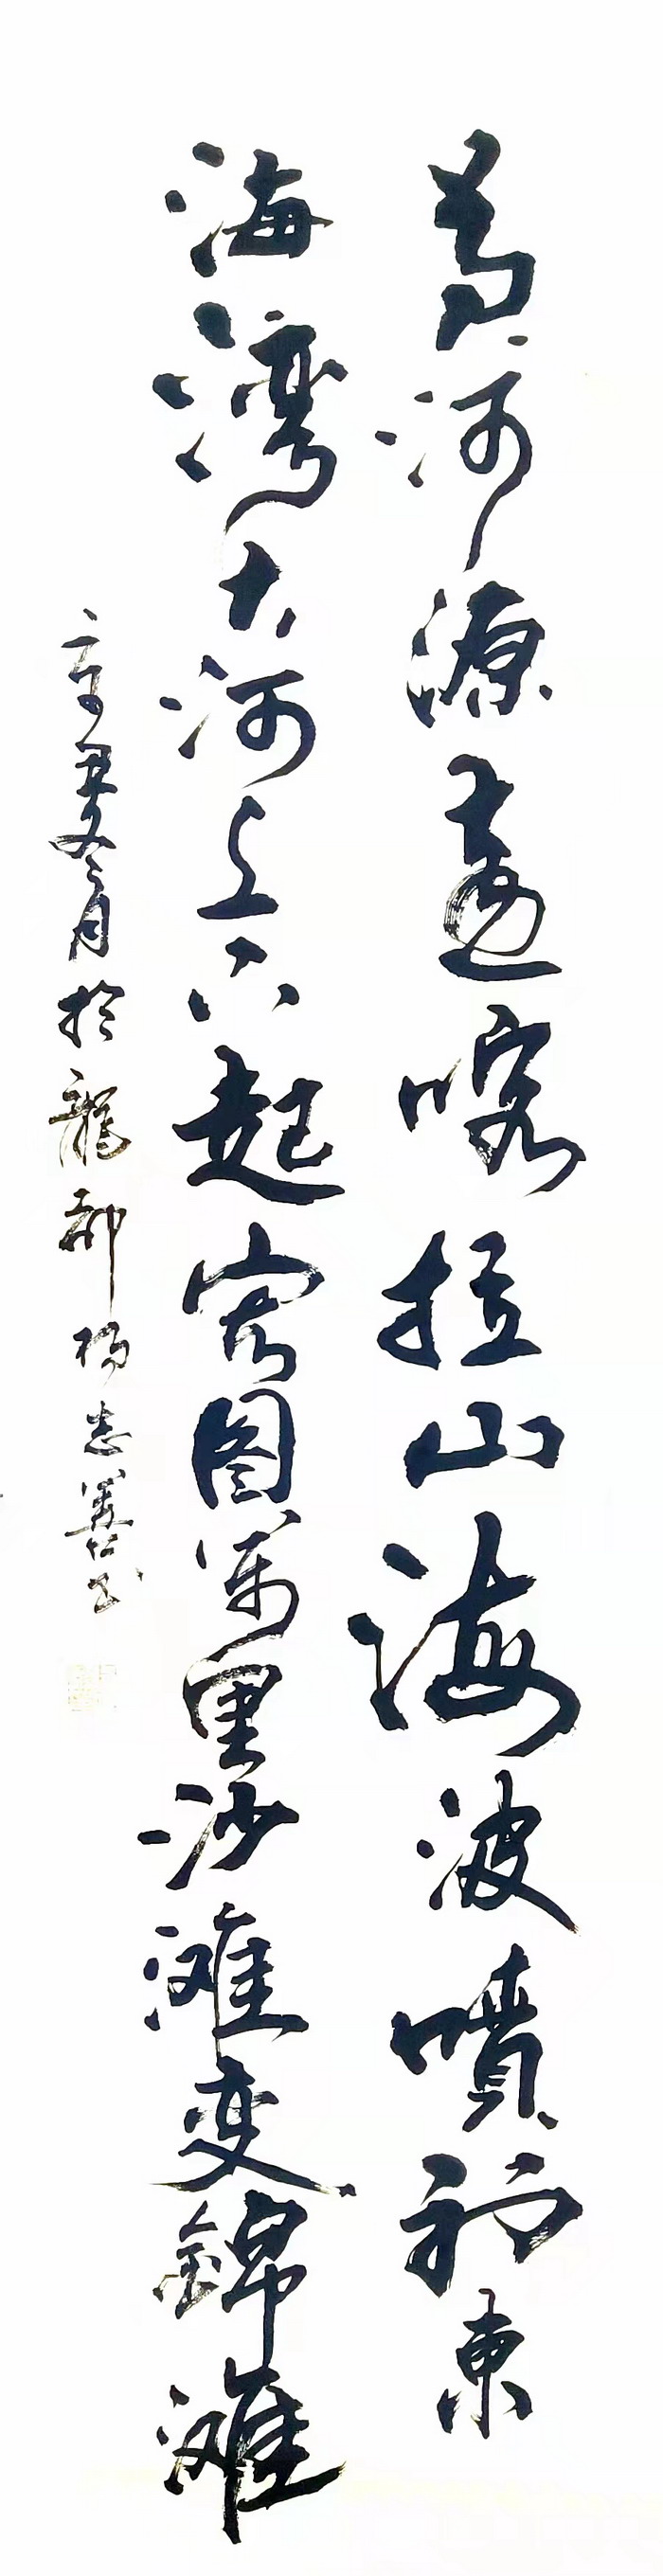 黄河源远喀拉山海波喷初东
海湾大河上下起宏图万里沙滩变锦滩
辛丑冬月於龙都杨志善书